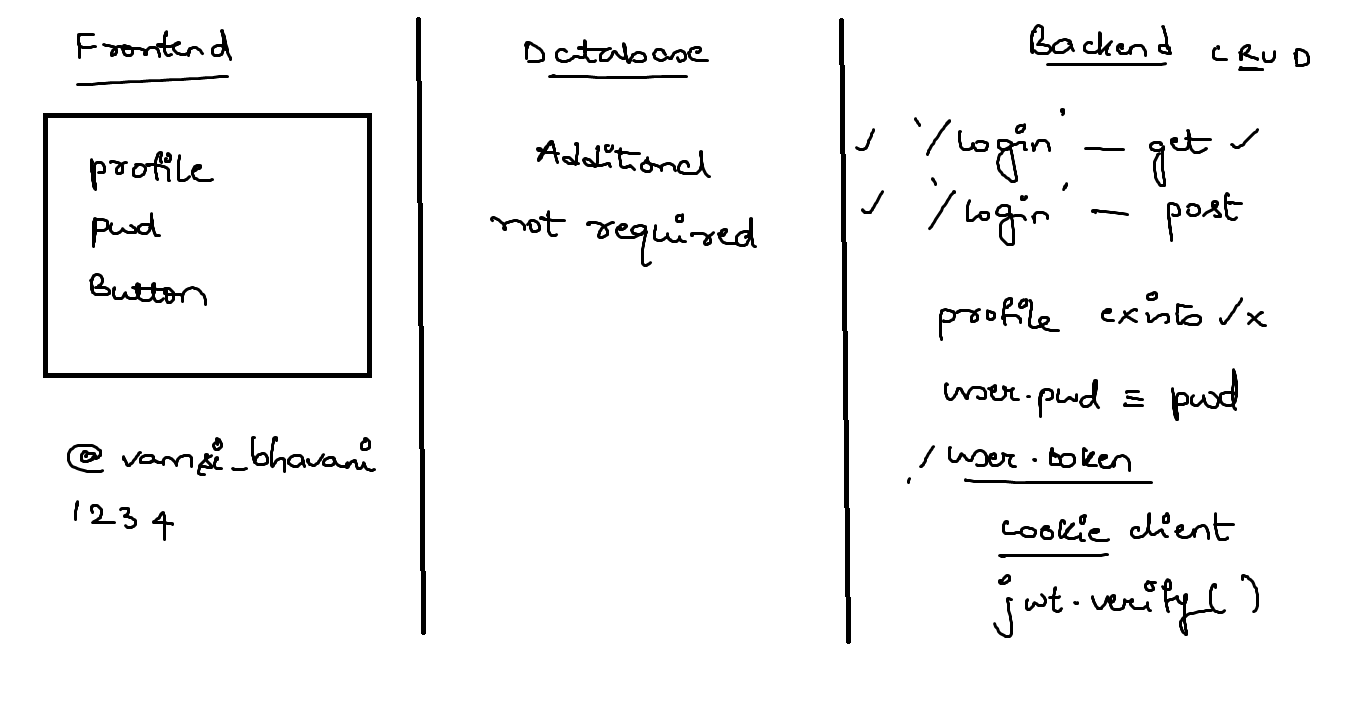 Frontend
profile
pwd
Button
@vamsi_bhavani
1234
Database
Additional
not required
Backend CRUD
✓ '/login' — get ✓
✓ '/login' — post
profile exists ✓x
user.pwd ≡ pwd
/ user.token
cookie client
jwt.verify()